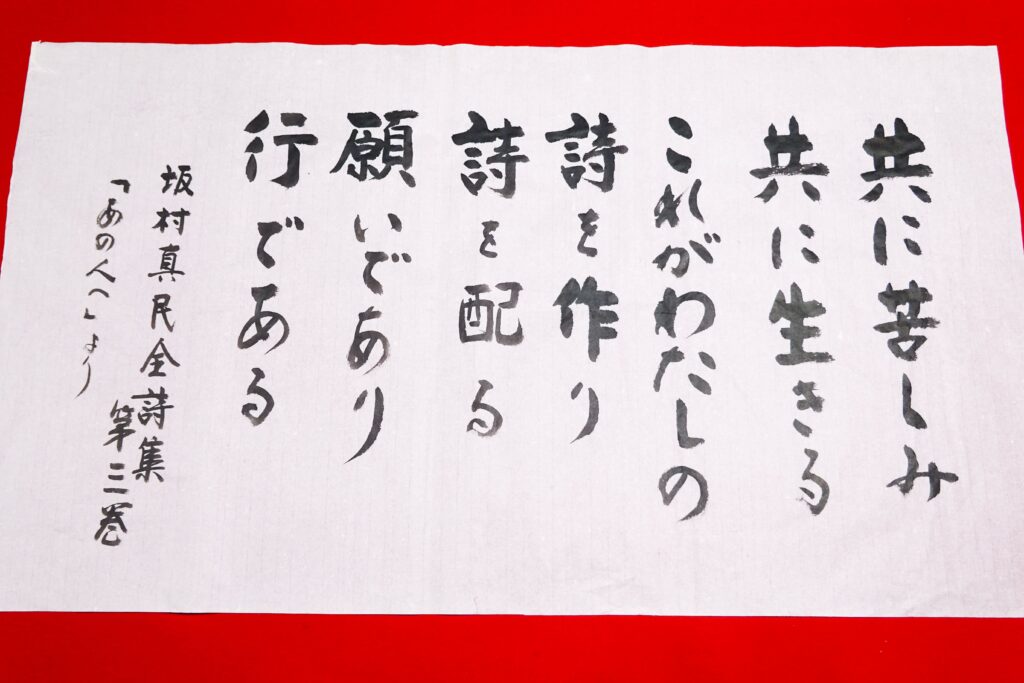 共に苦しみ
共に生きる
これがわたしの
詩を作り
詩を配る
願いであり
行である
坂村真民全詩集
第三巻
「あの人へ」より